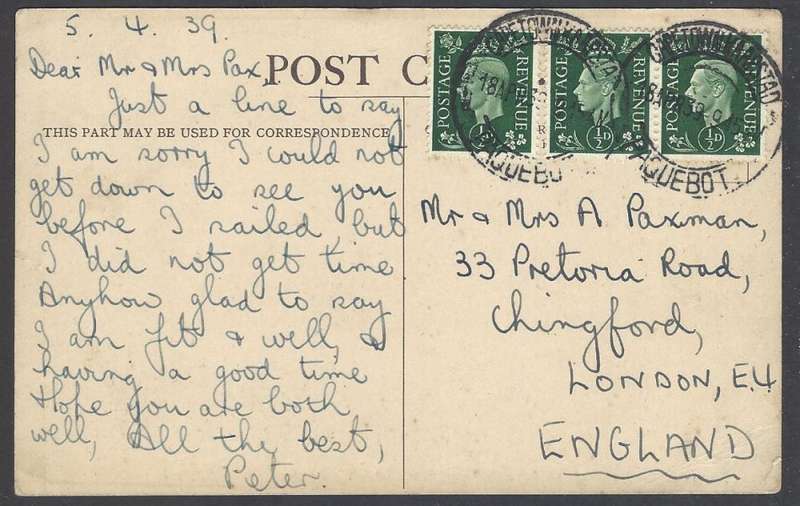 5. 4. 39.
Dear Mr & Mrs Pax,
Just a line to say
I am sorry I could not
get down to see you
before I sailed but
I did not get time
Anyhow glad to say
I am fit & well, &
having a good time
Hope you are both
well, All the best,
Peter.
POST C
THIS PART MAY BE USED FOR CORRESPONDENCE
POSTAGE REVENUE ½D
POSTAGE REVENUE ½D
POSTAGE REVENUE ½D
PAQUEBOT
Mr & Mrs A Paxman,
33 Pretoria Road,
Chingford,
LONDON, E.4
ENGLAND